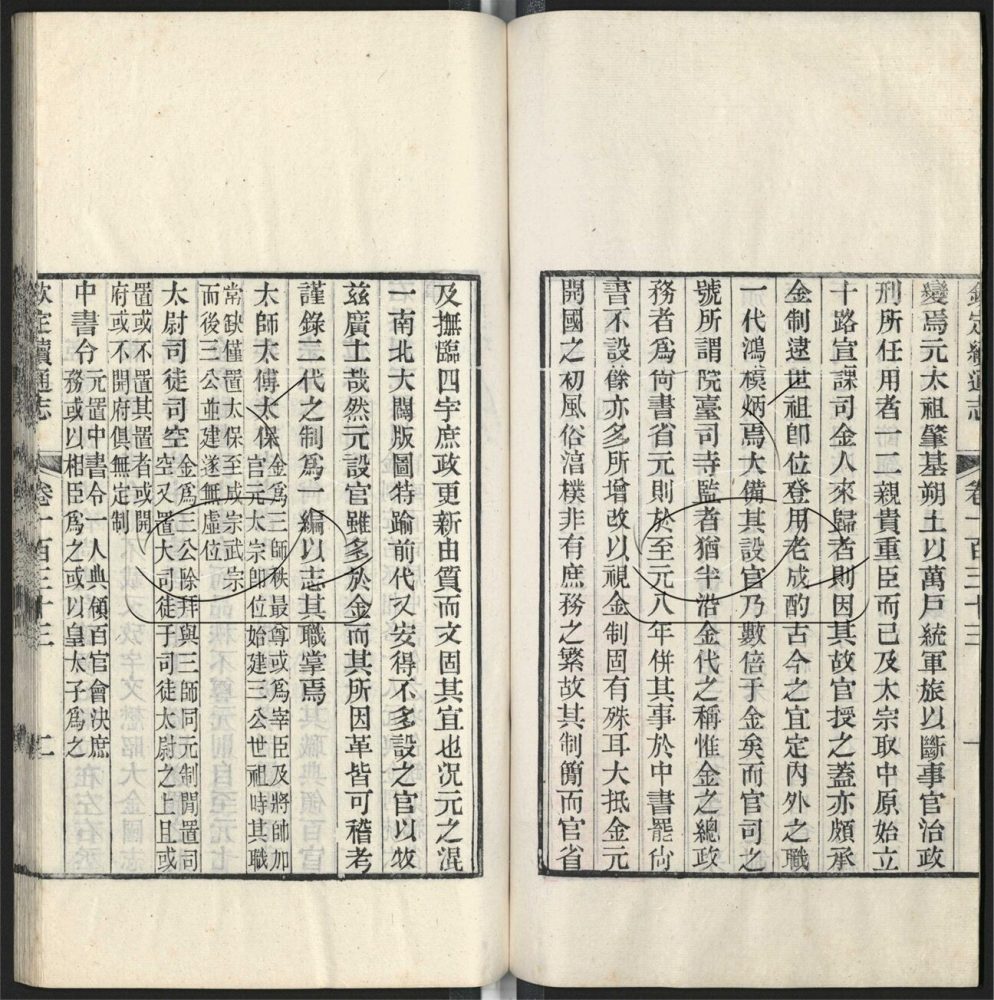 欽定續通志 卷一百三十三 一
變焉元太祖肇基朔土以萬戸統軍旅以斷事官治政
刑所任用者一二親貴重臣而已及太宗取中原始立
十路宣課司金人來歸者則因其故官授之蓋亦頗承
金制逮世祖卽位登用老成酌古今之宜定內外之職
一代鴻模炳焉大備其設官乃數倍于金矣而官司之
號所謂院臺司寺監者猶半沿金代之稱惟金之總政
務者爲尙書省元則於至元八年倂其事於中書罷尙
書不設餘亦多所增改以視金制固有殊耳大抵金元
開國之初風俗湻樸非有庶務之繁故其制簡而官省
及撫臨四宇庶政更新由質而文固其宜也况元之混
一南北大闢版圖特踰前代又安得不多設之官以牧
兹廣土哉然元設官雖多於金而其所因革皆可稽考
謹錄二代之制爲一編以志其職掌焉
太師太傅太保 金爲三師秩最尊或爲宰臣及將帥加
官元太宗卽位始建三公世祖時其職
常缺僅置太保至成宗武宗
而後三公並建遂無虛位
太尉司徒司空 金爲三公除拜與三師同元制閒置司
空又置大司徒于司徒太尉之上且或
置或不置其置者或開
府或不開府俱無定制
中書令 元置中書令一人典領百官會決庶
務或以相臣爲之或以皇太子爲之
欽定續通志 卷一百三十三 二